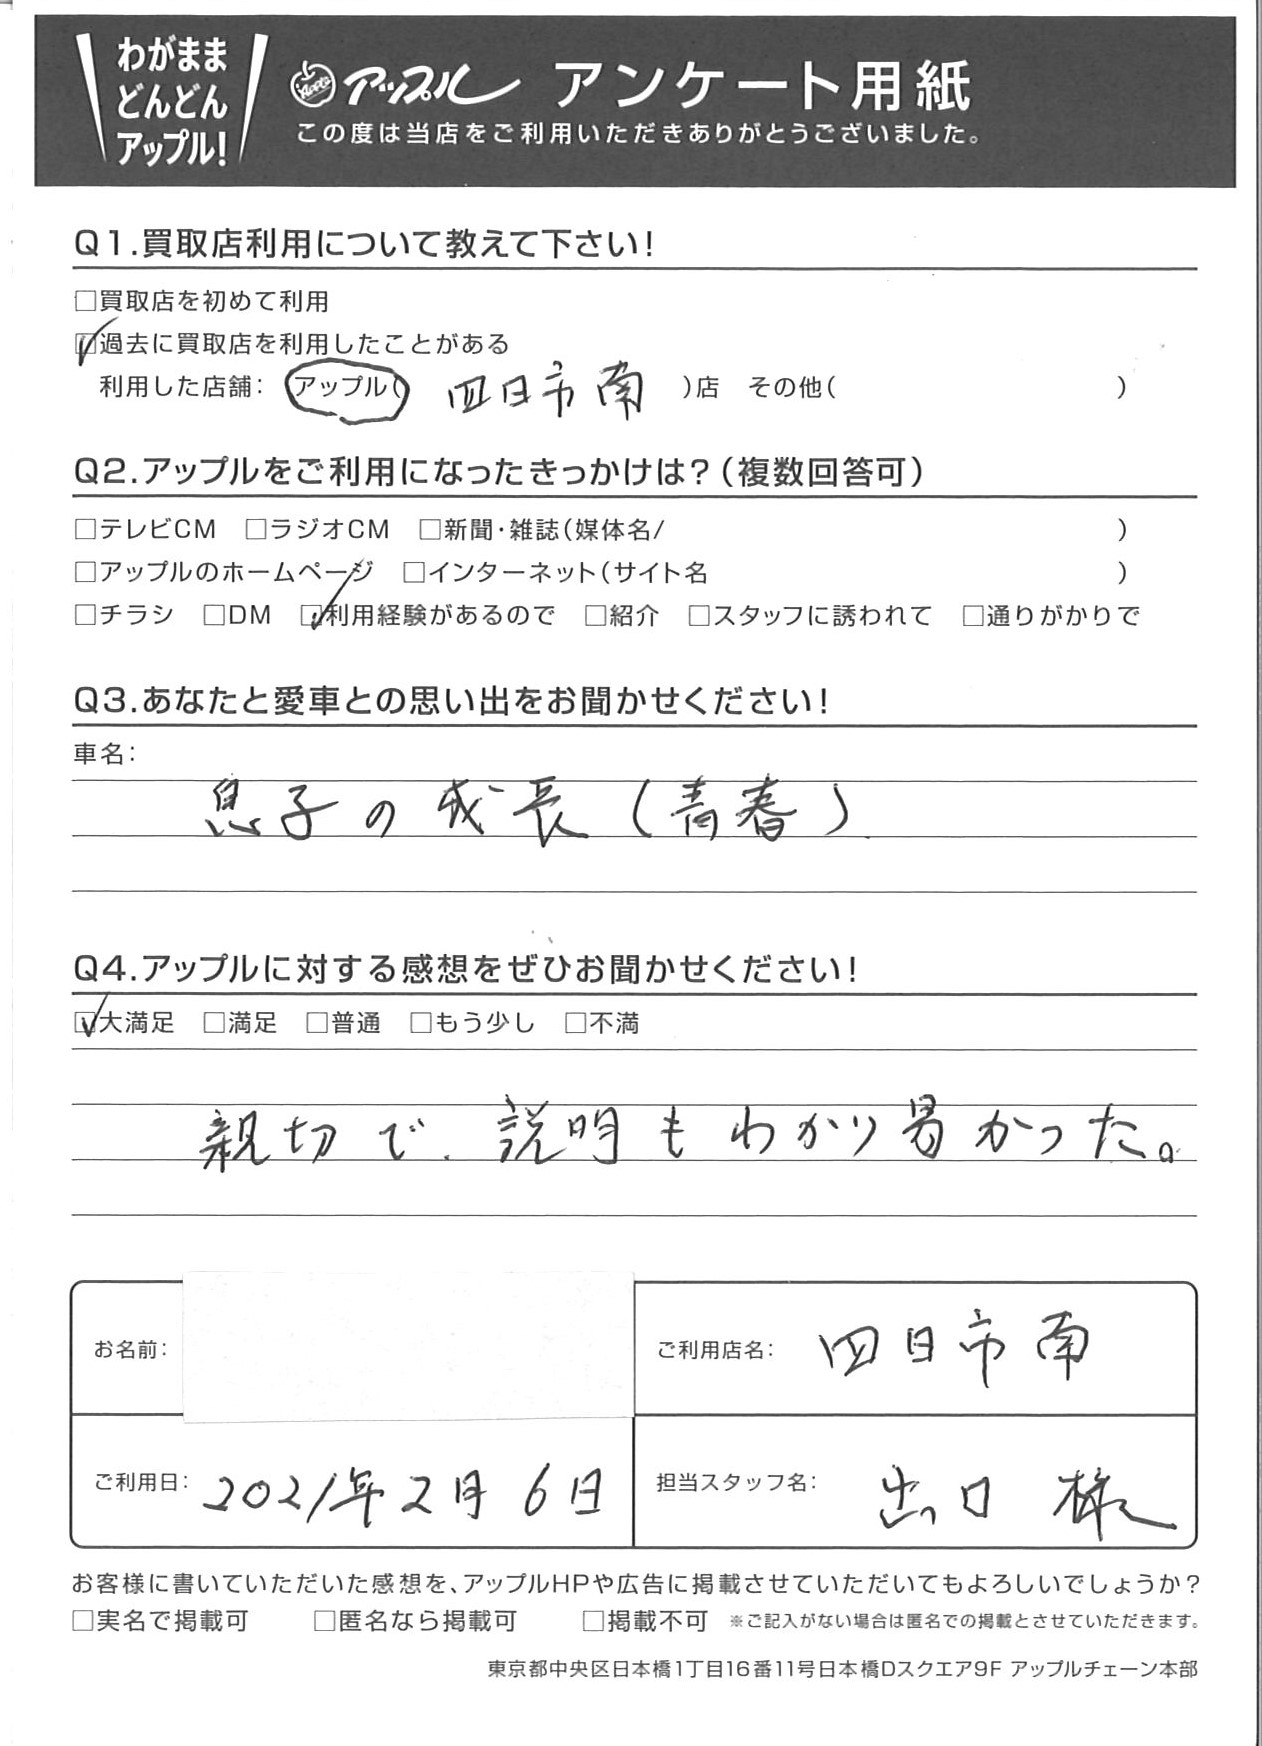 わがまま
どんどん
アップル!
アップル アンケート用紙
この度は当店をご利用いただきありがとうございました。
Q1.買取店利用について教えて下さい!
□買取店を初めて利用
☑過去に買取店を利用したことがある
利用した店舗: アップル( 四日市南 )店 その他( )
Q2.アップルをご利用になったきっかけは?(複数回答可)
□テレビCM □ラジオCM □新聞・雑誌(媒体名/ )
□アップルのホームページ □インターネット(サイト名 )
□チラシ □DM ☑利用経験があるので □紹介 □スタッフに誘われて □通りがかりで
Q3.あなたと愛車との思い出をお聞かせください!
車名:
息子の成長(青春)
Q4.アップルに対する感想をぜひお聞かせください!
☑大満足 □満足 □普通 □もう少し □不満
親切で、説明もわかり易かった。
お名前:
ご利用店名: 四日市南
ご利用日: 2021年2月6日
担当スタッフ名: 出口 様
お客様に書いていただいた感想を、アップルHPや広告に掲載させていただいてもよろしいでしょうか?
□実名で掲載可 □匿名なら掲載可 □掲載不可 ※ご記入がない場合は匿名での掲載とさせていただきます。
東京都中央区日本橋1丁目16番11号日本橋Dスクエア9F アップルチェーン本部